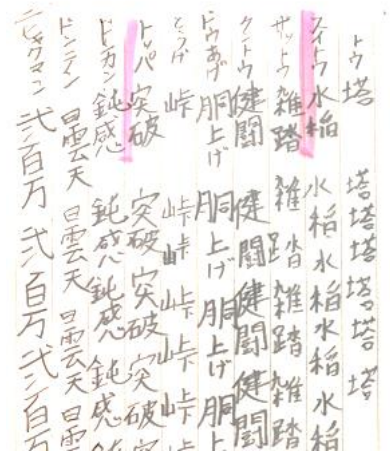 トウ塔 塔塔塔塔塔
スイトウ水稲 水稲水稲水稲水稲
ザットウ雑踏 雑踏雑踏雑踏
ケントウ健闘 健闘健闘健闘
ドウあげ胴上げ 胴上げ胴上げ胴上
とうげ峠 峠峠峠峠峠
トッパ突破 突破突破突破
ドンカン鈍感 鈍感鈍感鈍感
ドンテン曇天 曇天曇天曇
ニヒャクマン弐百万 弐百万弐百万